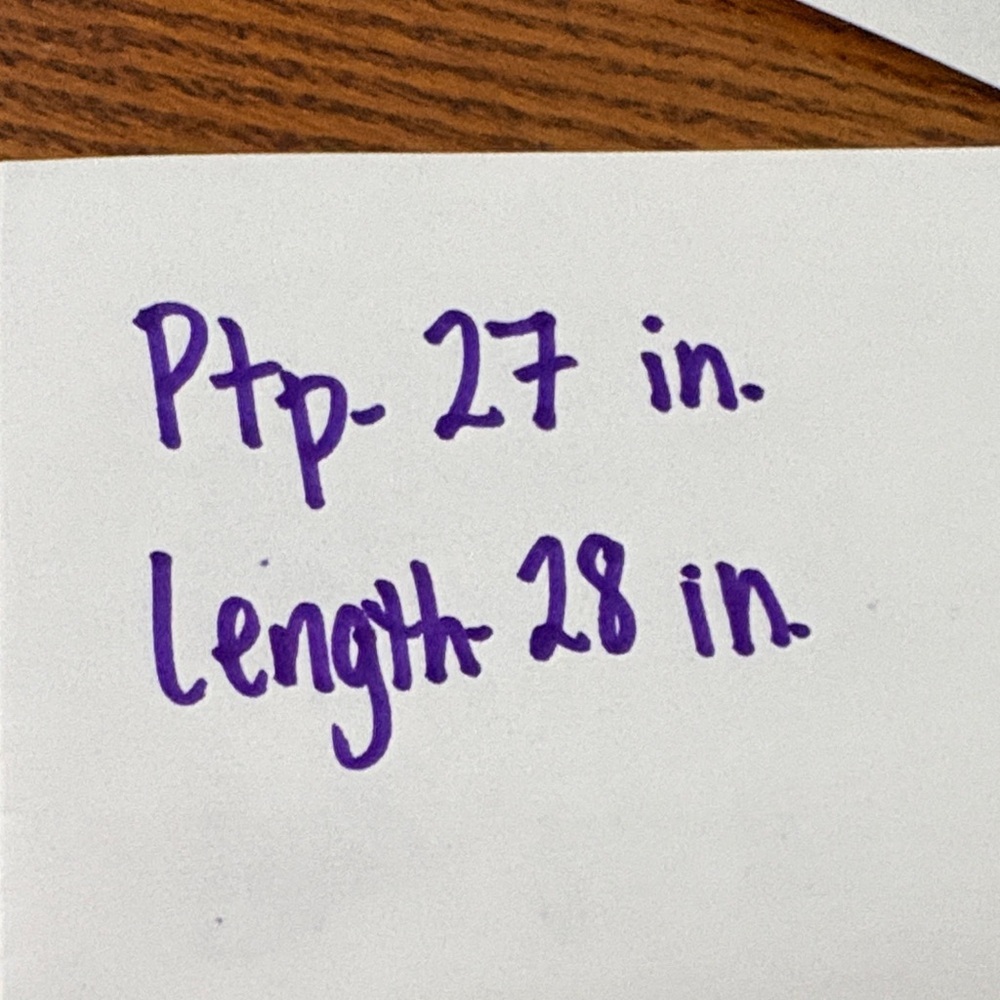 Ptp- 27 in.
Length- 28 in.